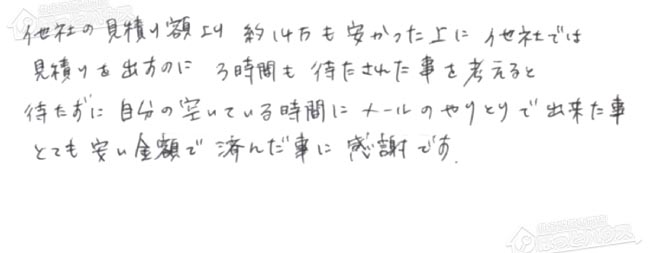 他社の見積り額より 約14万も安かった上に 他社では
見積りを出すのに 3時間も 待たされた事を考えると
待たずに 自分の空いている時間に メールのやりとりで出来た事
とても 安い金額で 済んだ事に 感謝です.